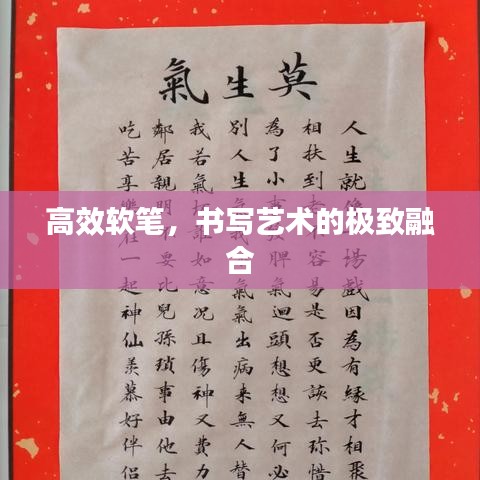 莫生氣
人生就像場戲因為有緣才相聚
相扶到容易是否更該去珍惜
為了小事脾氣迴頭想想又何必
別人生氣氣氣出病來無人替
我若氣誰如意況且傷神又費力
鄰居親要比兒孫瑣事由他去
吃苦享樂在一起神仙羨慕好伴侶
高效软笔，书写艺术的极致融
合